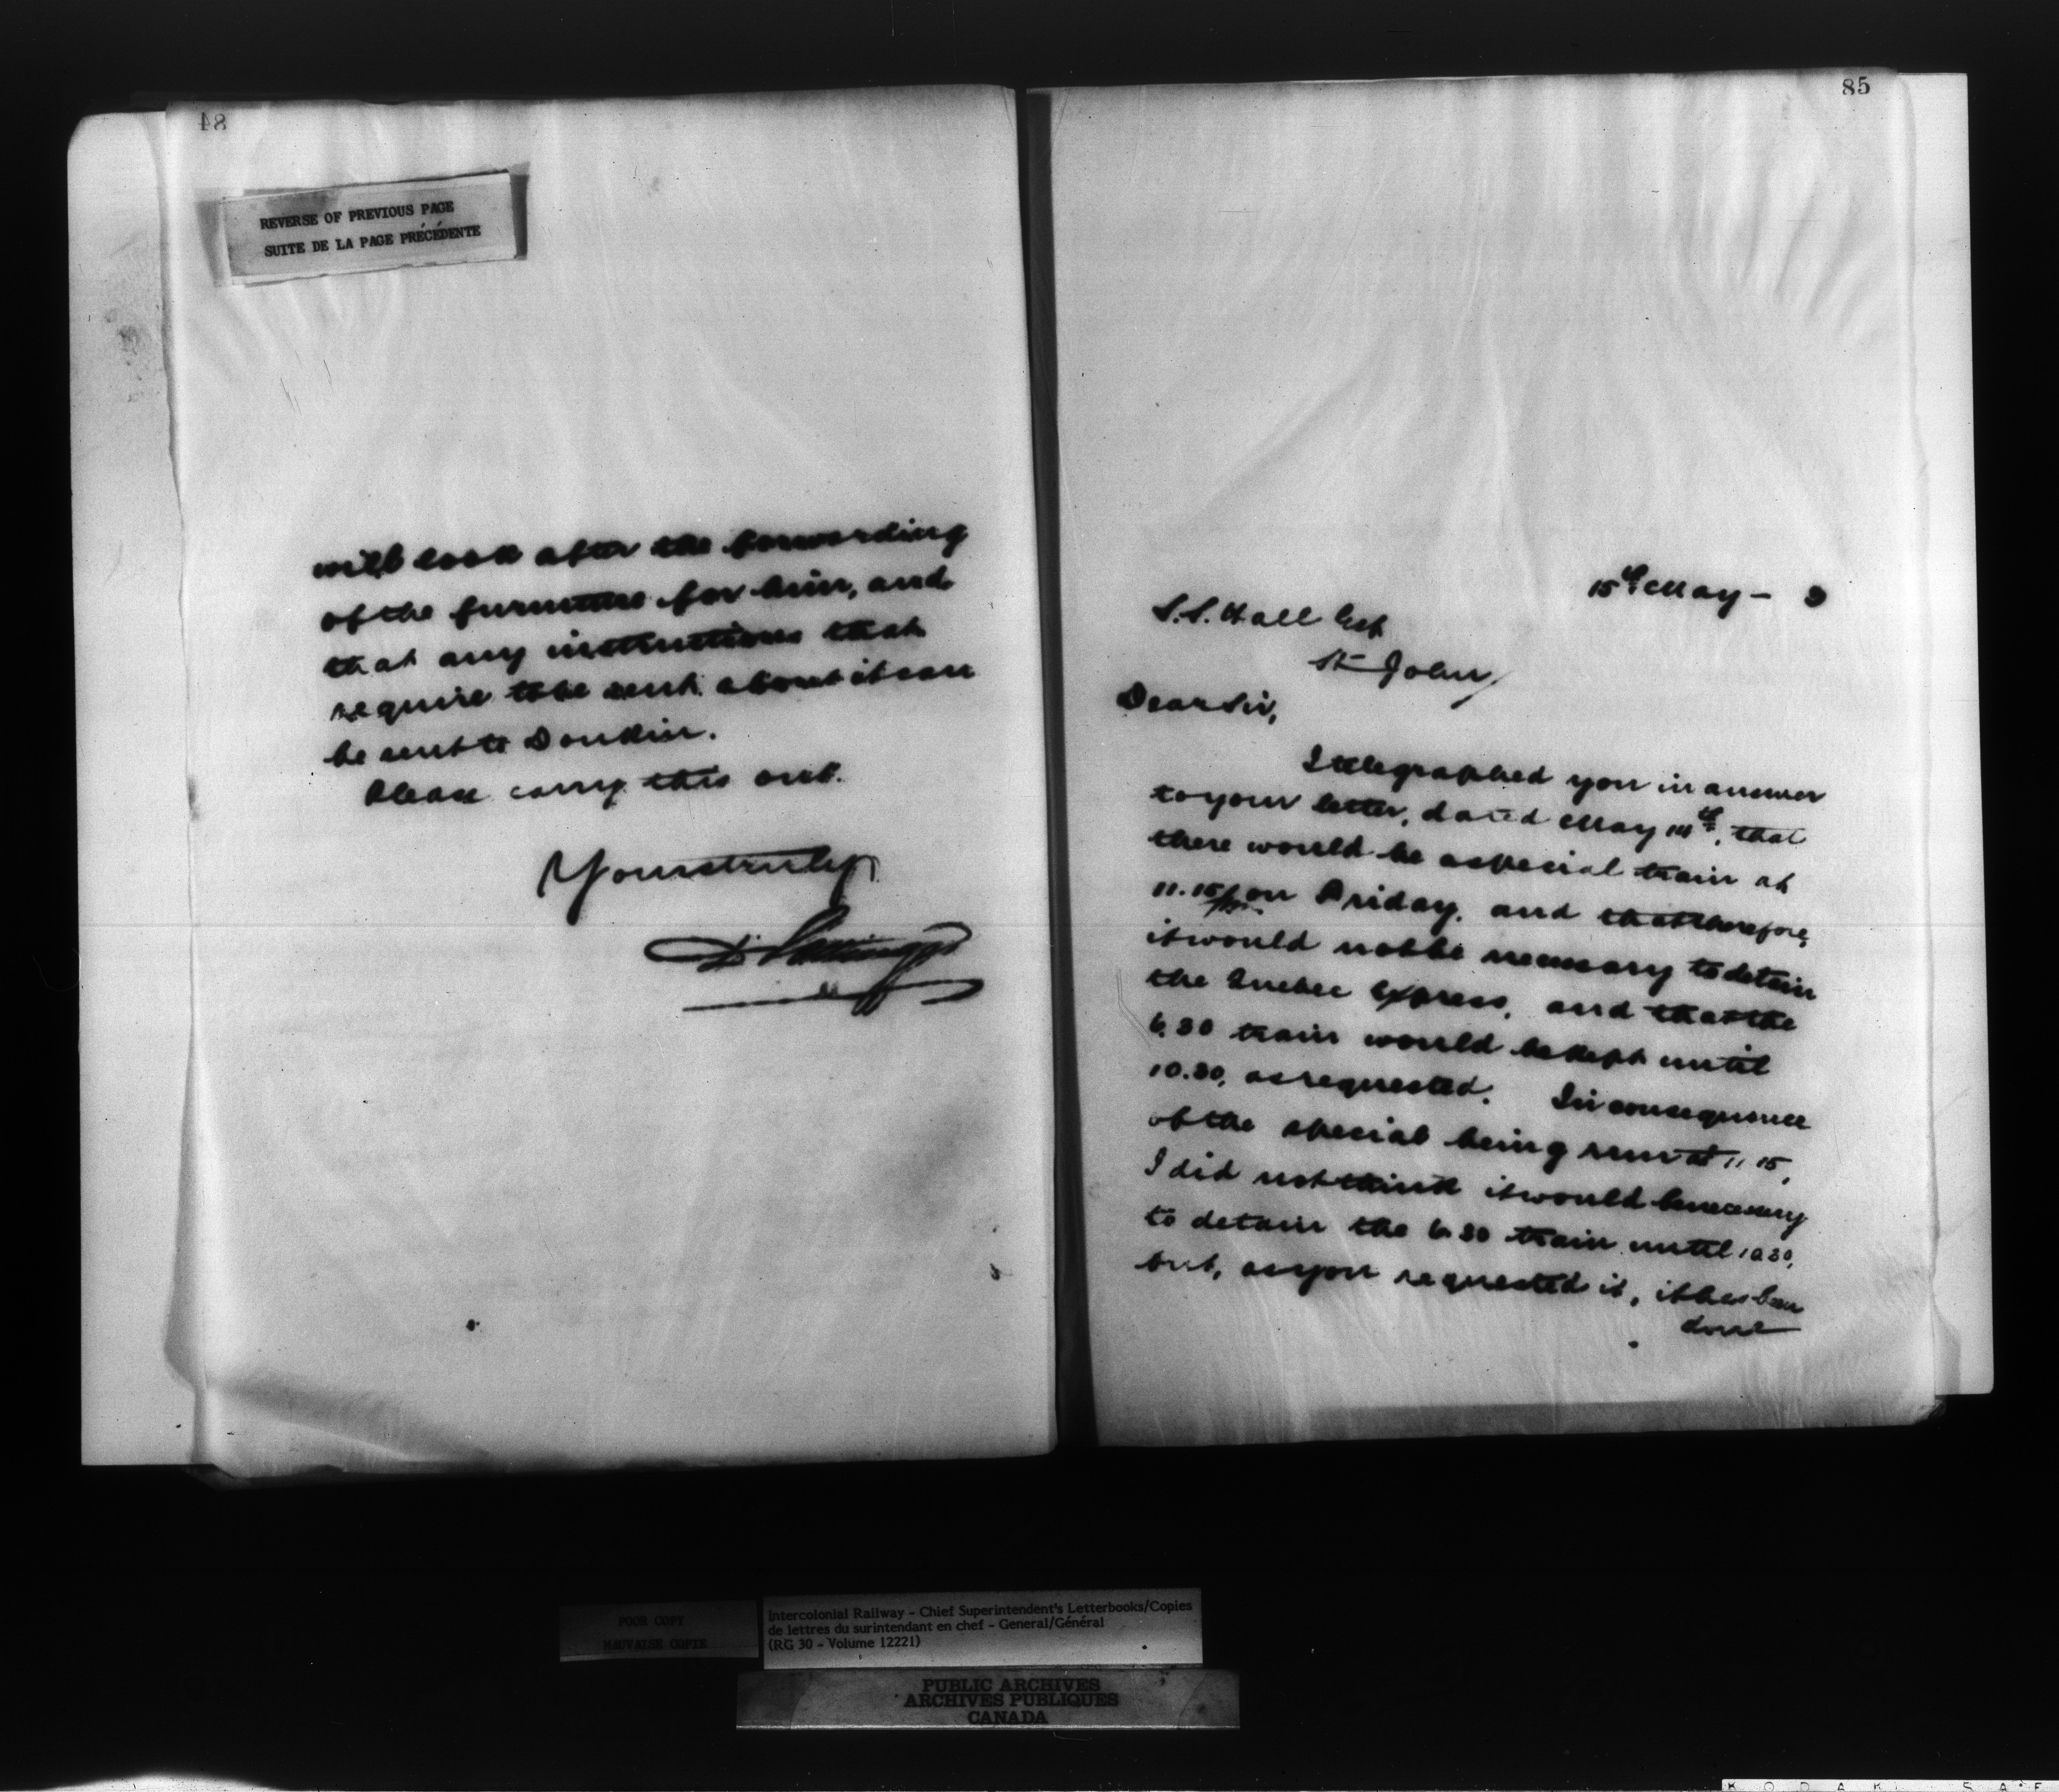 84
REVERSE OF PREVIOUS PAGE
SUITE DE LA PAGE PRÉCÉDENTE
will look after the forwarding
of the furniture for him, and
that any instructions that
require to be sent about it can
be sent to Donkin.
Please carry this out.
Yours truly
D. Pottinger
85
15th May - 3
S.S. Hall Esq
St John
Dear Sir,
I telegraphed you in answer
to your letter, dated May 14th, that
there would be a special train at
11.15 pm on Friday, and that therefore,
it would not be necessary to detain
the Quebec Express, and that the
6.30 train would be kept until
10.30, as requested. In consequence
of the special being run at 11 15,
I did not think it would be necessary
to detain the 6.30 train until 10 30,
but, as you requested it, it has been
done
POOR COPY
MAUVAISE COPIE
Intercolonial Railway - Chief Superintendent's Letterbooks/Copies
de lettres du surintendant en chef - General/Général
(RG 30 - Volume 12221)
PUBLIC ARCHIVES
ARCHIVES PUBLIQUES
CANADA